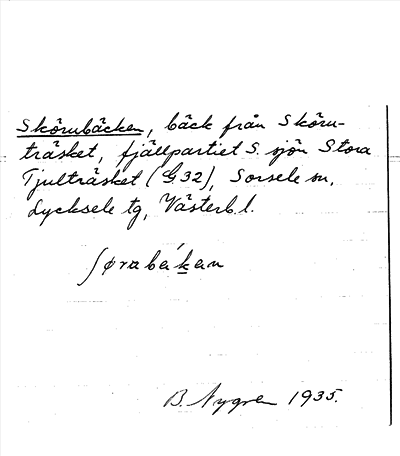 Skörubäcken, bäck från Sköru-
träsket, fjällpartiet S. sjön Stora
Tjulträsket (G32), Sorsele sn,
Lycksele tg, Västerb. l.
B. Nygren 1935.